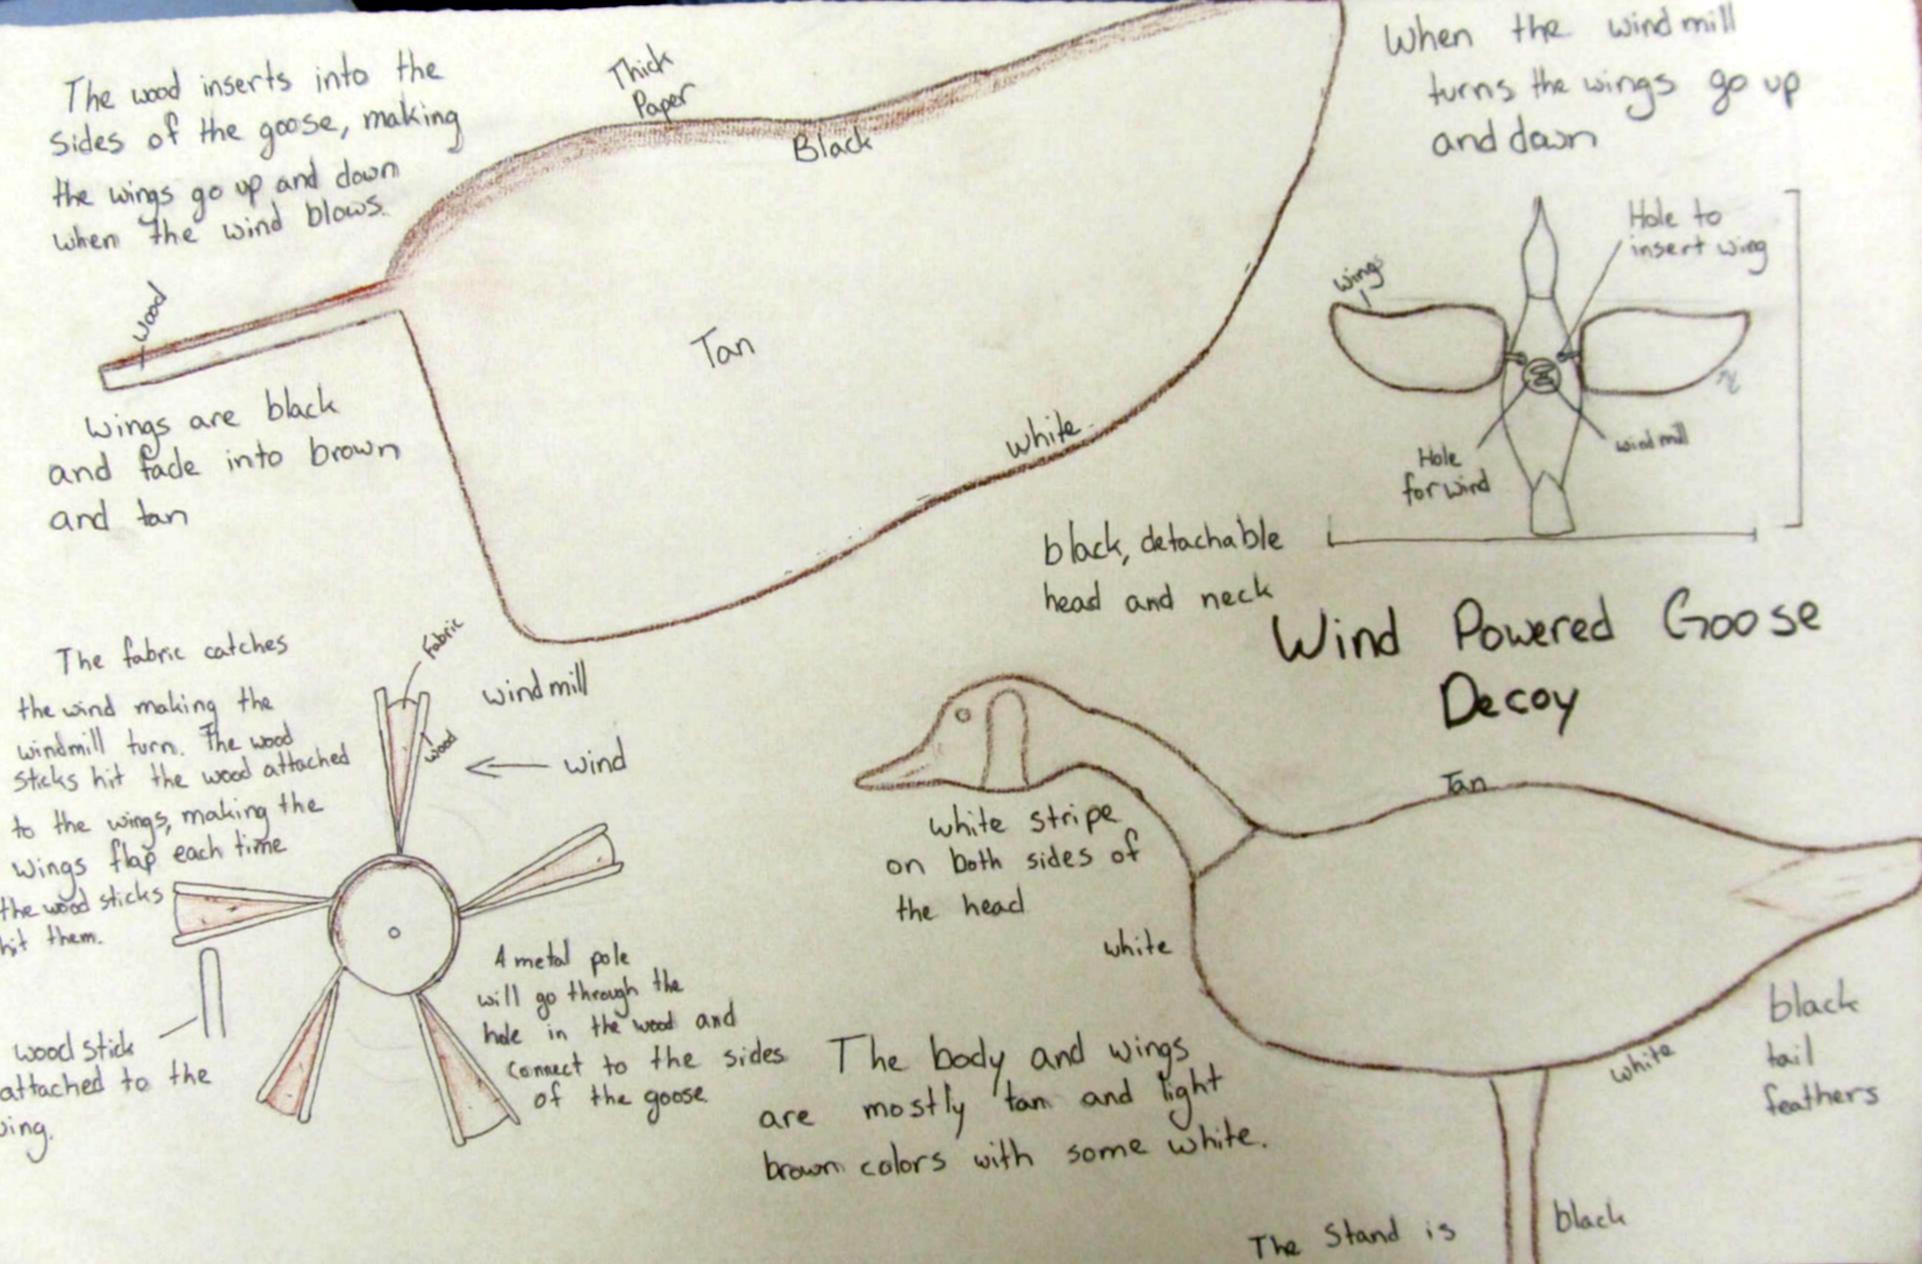 The wood inserts into the
sides of the goose, making
the wings go up and down
when the wind blows.
Thick
Paper
Black
When the windmill
turns the wings go up
and down
wood
Tan
white
wings are black
and fade into brown
and tan
Hole to
insert wing
wings
Hole
for wind
windmill
black, detachable
head and neck
Wind Powered Goose
Decoy
The fabric catches
the wind making the
windmill turn. The wood
sticks hit the wood attached
to the wings, making the
wings flap each time
the wood sticks
hit them.
Fabric
wood
windmill
wind
wood stick
attached to the
A metal pole
will go through the
hole in the wood and
connect to the sides
of the goose.
Tan
white stripe
on both sides of
the head
white
white
black
tail
feathers
The body and wings
are mostly tan and light
brown colors with some white.
The Stand is
black